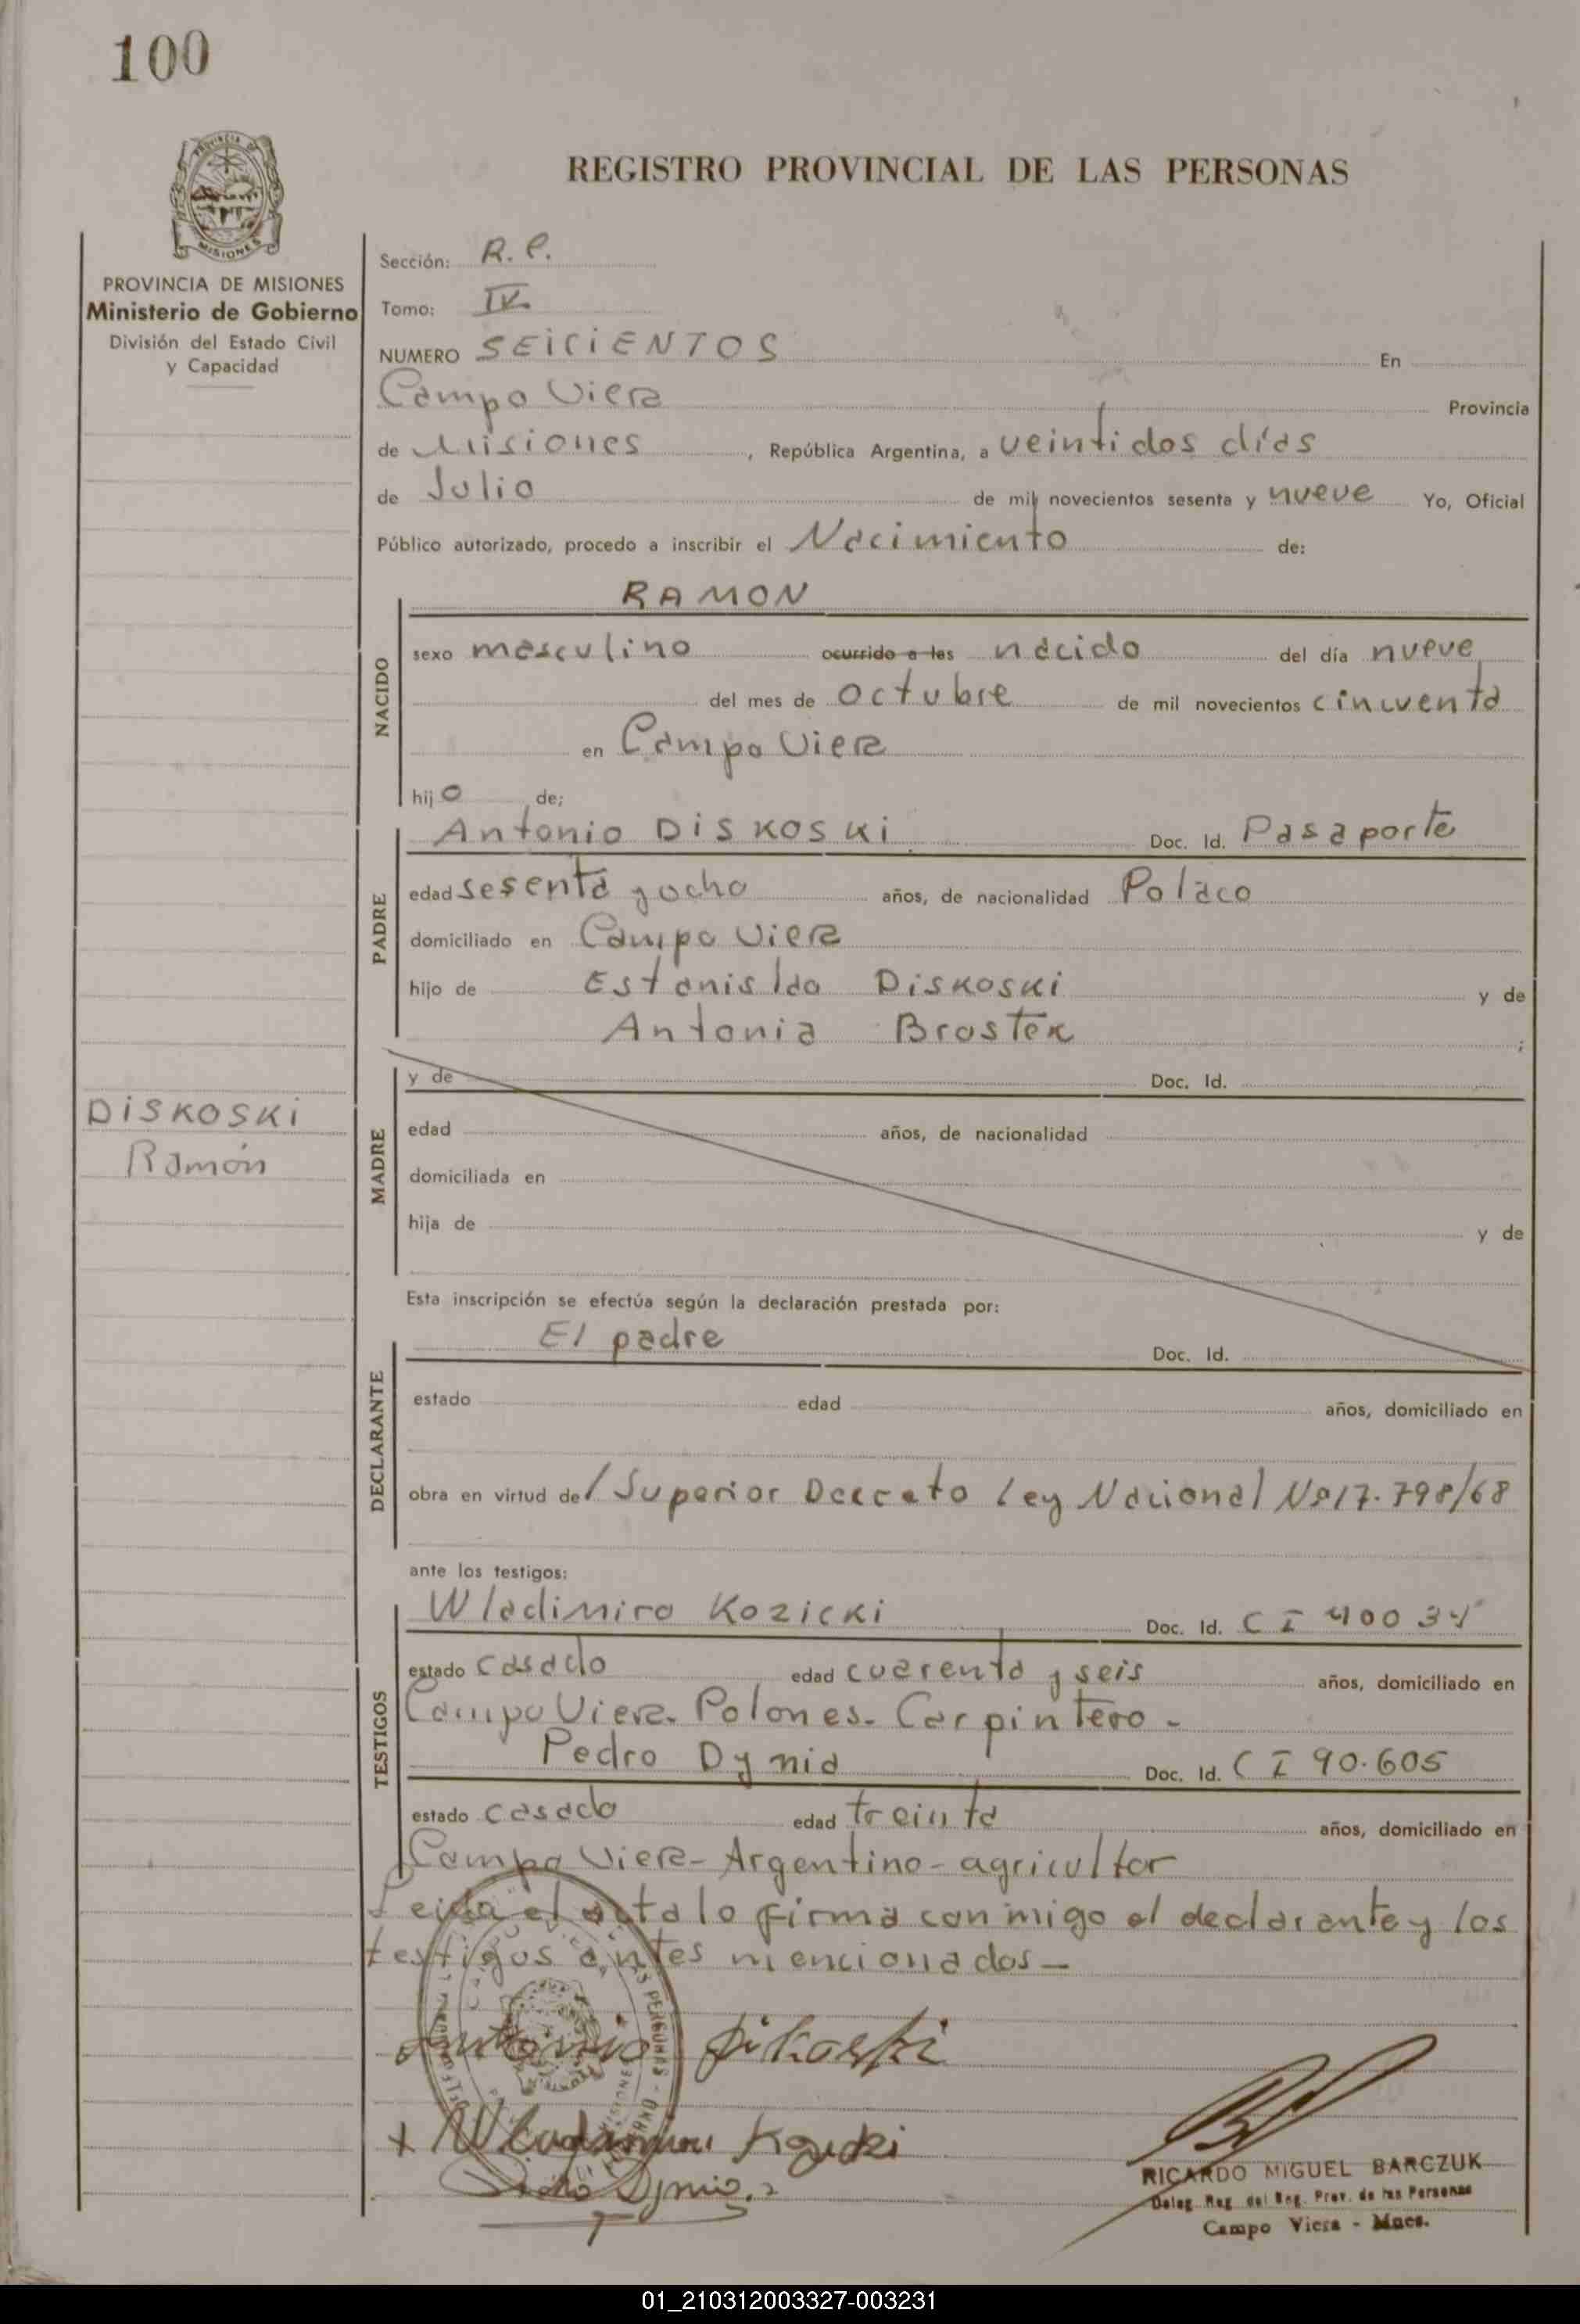 100
REGISTRO PROVINCIAL DE LAS PERSONAS
PROVINCIA DE MISIONES
Ministerio de Gobierno
División del Estado Civil
y Capacidad
Sección: R. P.
Tomo: IV.
NUMERO SEICIENTOS En
Campo Viera Provincia
de Misiones, República Argentina, a veintidos días
de Julio de mil novecientos sesenta y nueve Yo, Oficial
Público autorizado, procedo a inscribir el Nacimiento de:
NACIDO
RAMON
sexo masculino ocurrido a las nacido del día nueve
del mes de octubre de mil novecientos cincuenta
en Campo Viera
hijo de;
PADRE
Antonio DisKosKi Doc. Id. Pasaporte
edad sesenta y ocho años, de nacionalidad Polaco
domiciliado en Campo Viera
hijo de Estanislao DisKosKi y de
Antonia Brostek ;
MADRE
y de Doc. Id.
edad años, de nacionalidad
domiciliada en
hija de y de
DISKOSKI
Ramón
Esta inscripción se efectúa según la declaración prestada por:
DECLARANTE
El padre Doc. Id.
estado edad años, domiciliado en
obra en virtud del Superior Decreto Ley Nacional Nº17.798/68
ante los testigos:
TESTIGOS
Wladimiro Kozicki Doc. Id. C I
estado casado edad cuarenta y seis años, domiciliado en
Campo Viera. Polones. Carpintero -
Pedro Dynia Doc. Id. C I 90.605
estado casado edad treinta años, domiciliado en
Campo Viera - Argentino - agricultor
Leida el acta lo firma conmigo el declarante y los
testigos antes mencionados -
Antonio Dikoski
+ Wladimiro Kozicki
Pedro Dynia
RICARDO MIGUEL BARCZUK
Deleg. Reg. del Reg. Prov. de las Personas
Campo Viera - Mnes.
01_210312003327-003231